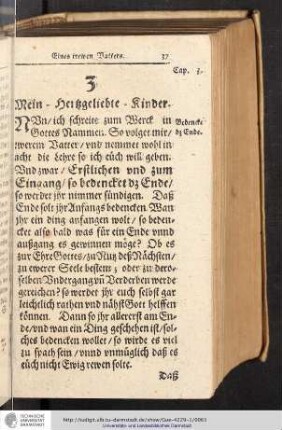 Eines trewen Vatters. 37
Cap. 3.
3.
Mein - Hertzgeliebte - Kinder.
NUn / ich schreite zum Werck in
Gottes Nammen. So volget mir /
ewerem Vatter / vnd nemmet wohl in
acht die Lehre so ich euch will geben.
Vnd zwar / Erstlichen vnd zum
Eingang / so bedencket dz Ende /
so werdet jhr nimmer sündigen. Daß
Ende solt jhr Anfangs bedencken. Wan
jhr ein ding anfangen wolt / so beden-
cket also bald was für ein Ende vnnd
außgang es gewinnen möge? Ob es
zur Ehre Gottes / zu Nutz deß Nächsten /
zu ewerer Seele bestem; oder zu dero-
selben Vndergang vñ Verderben werde
gereichen? so werdet jhr euch selbst gar
leichtlich rathen vnd nähst Gott helffen
können. Dann so jhr allererst am En-
de / vnd wan ein Ding geschehen ist / sol-
ches bedencken wollet / so wirde es viel
zu spath sein / vnnd vnmüglich daß es
euch nicht Ewig rewen solte.
Daß
Bedencke
dz Ende.
TECHNISCHE
UNIVERSITÄT
DARMSTADT
http://tudigit.ulb.tu-darmstadt.de/show/Gue-4229-1/0063
Universitäts- und Landesbibliothek Darmstadt